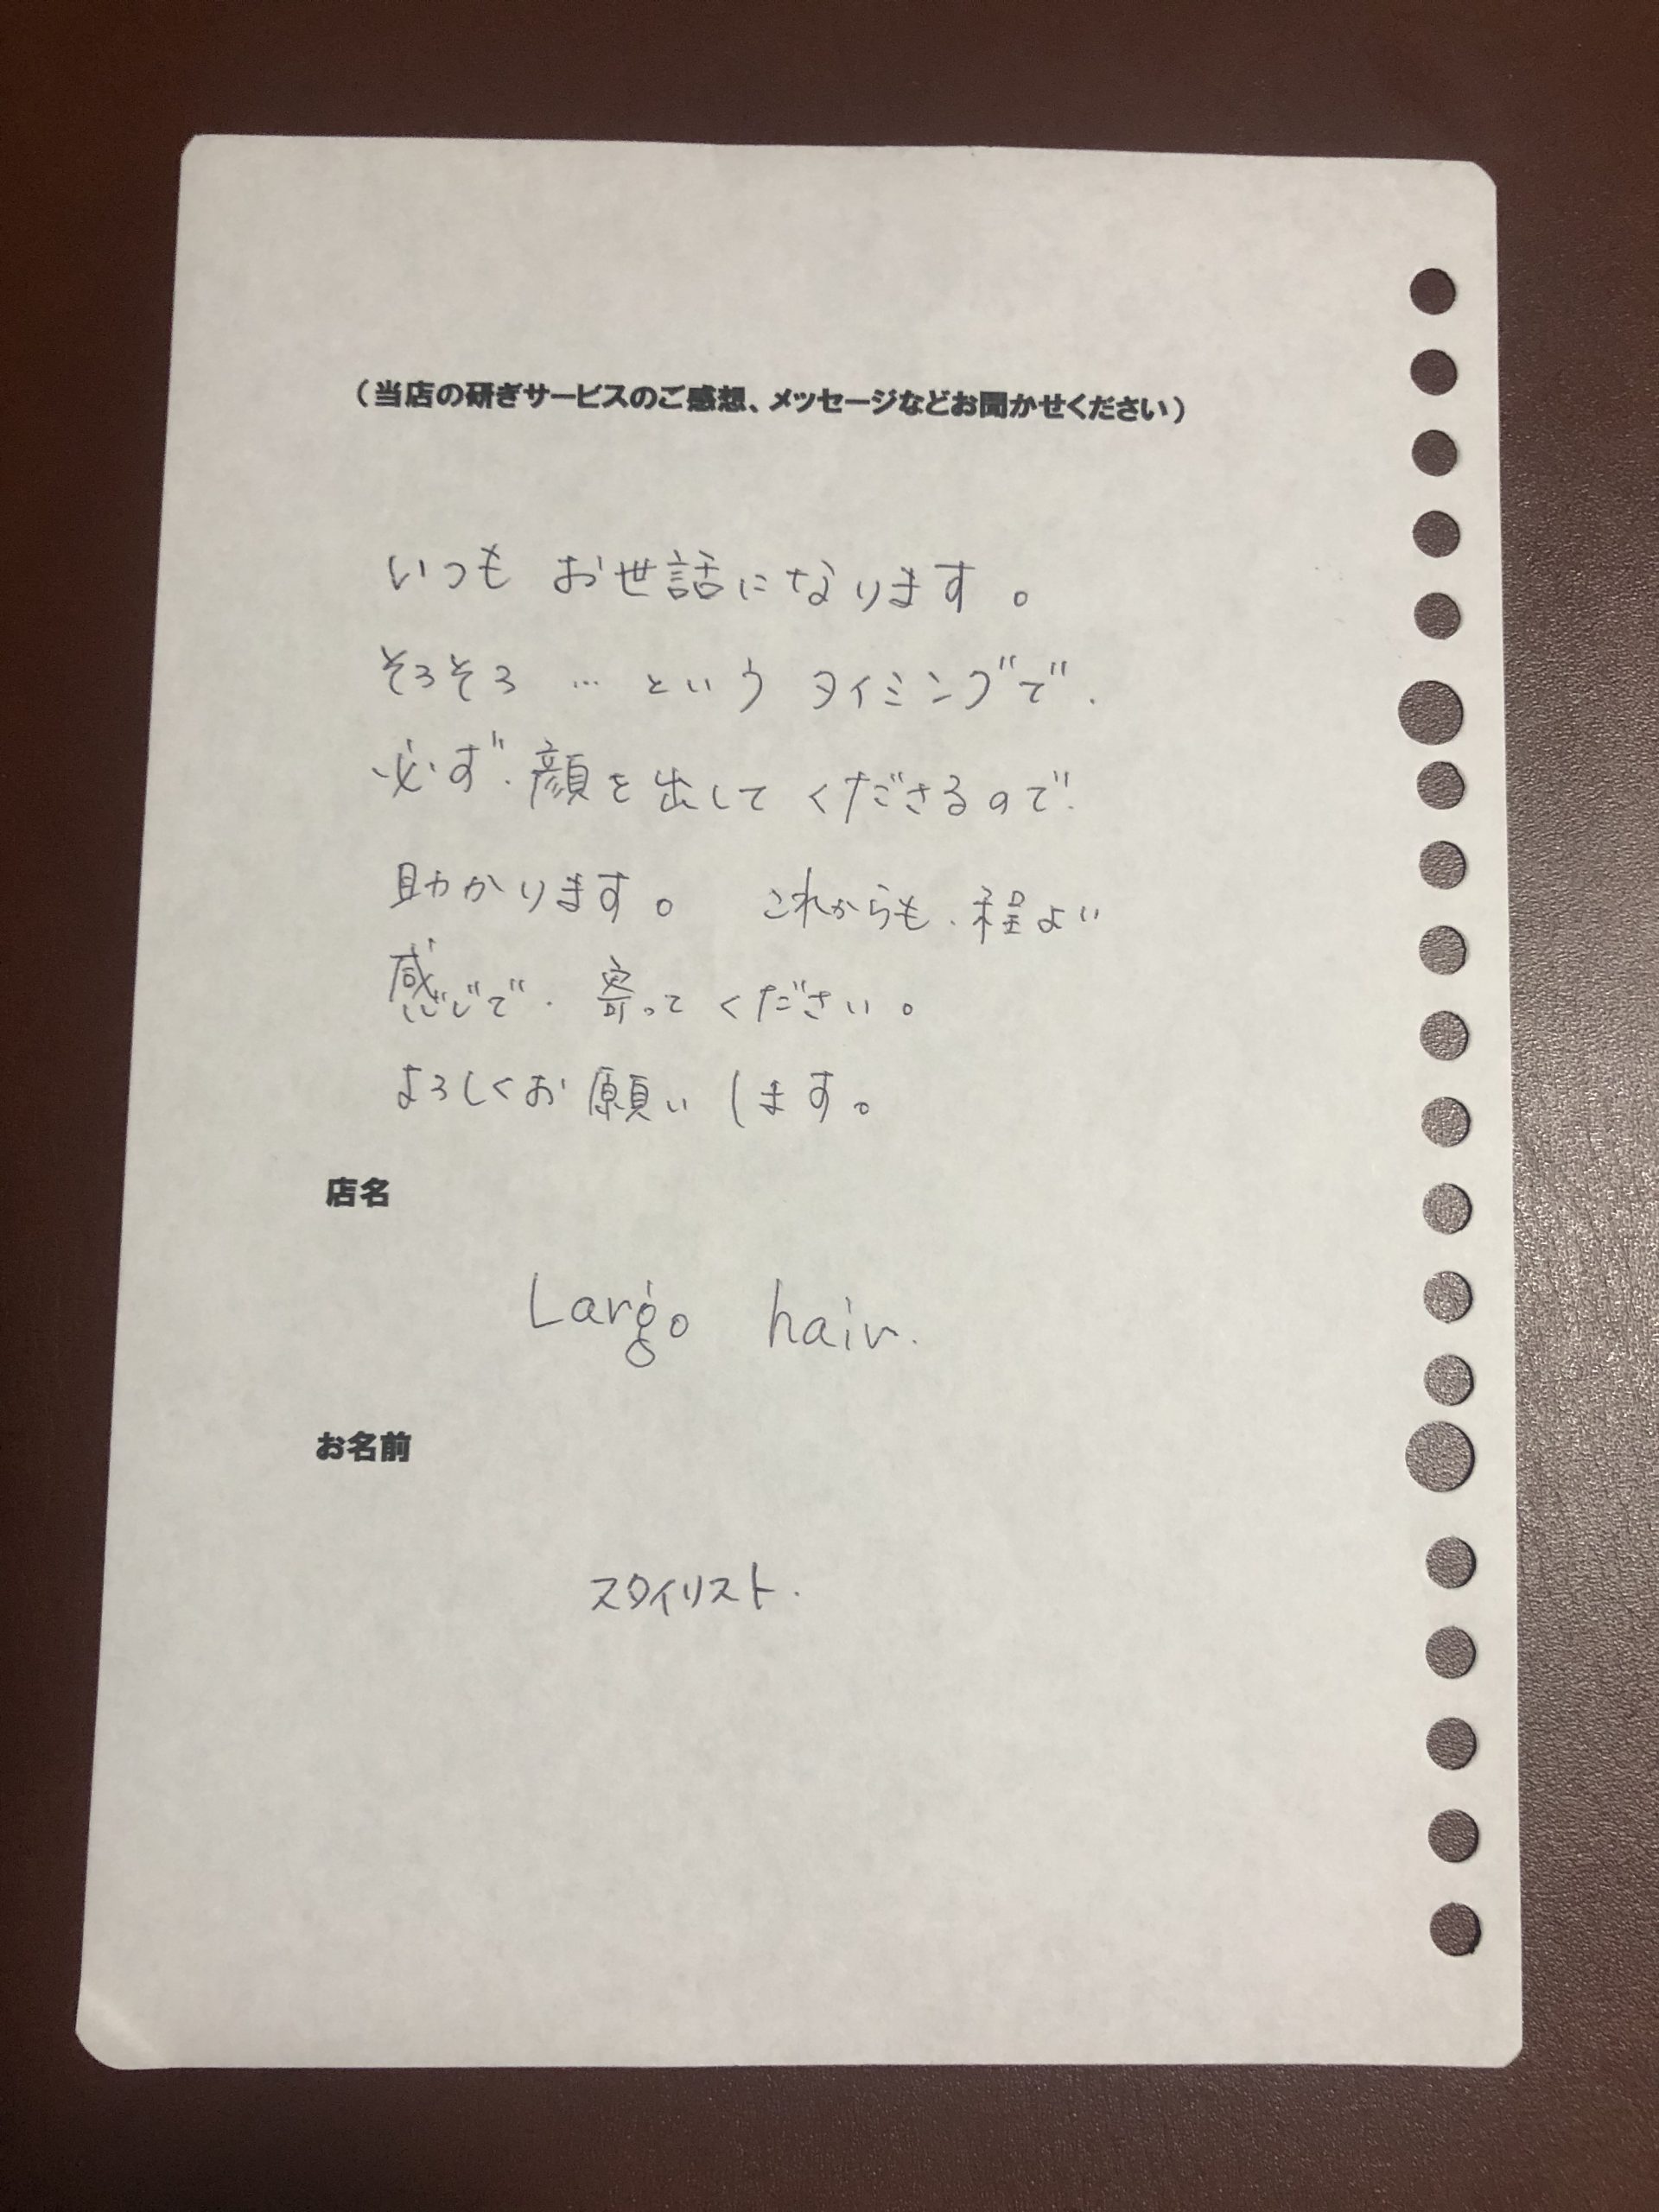 （当店の研ぎサービスのご感想、メッセージなどお聞かせください）
いつも お世話になります。
そろそろ … という タイミングで、
必ず、顔を出して くださるので、
助かります。 これからも、程よい
感じで、寄って ください。
よろしくお願いします。
店名
Largo hair.
お名前
スタイリスト.